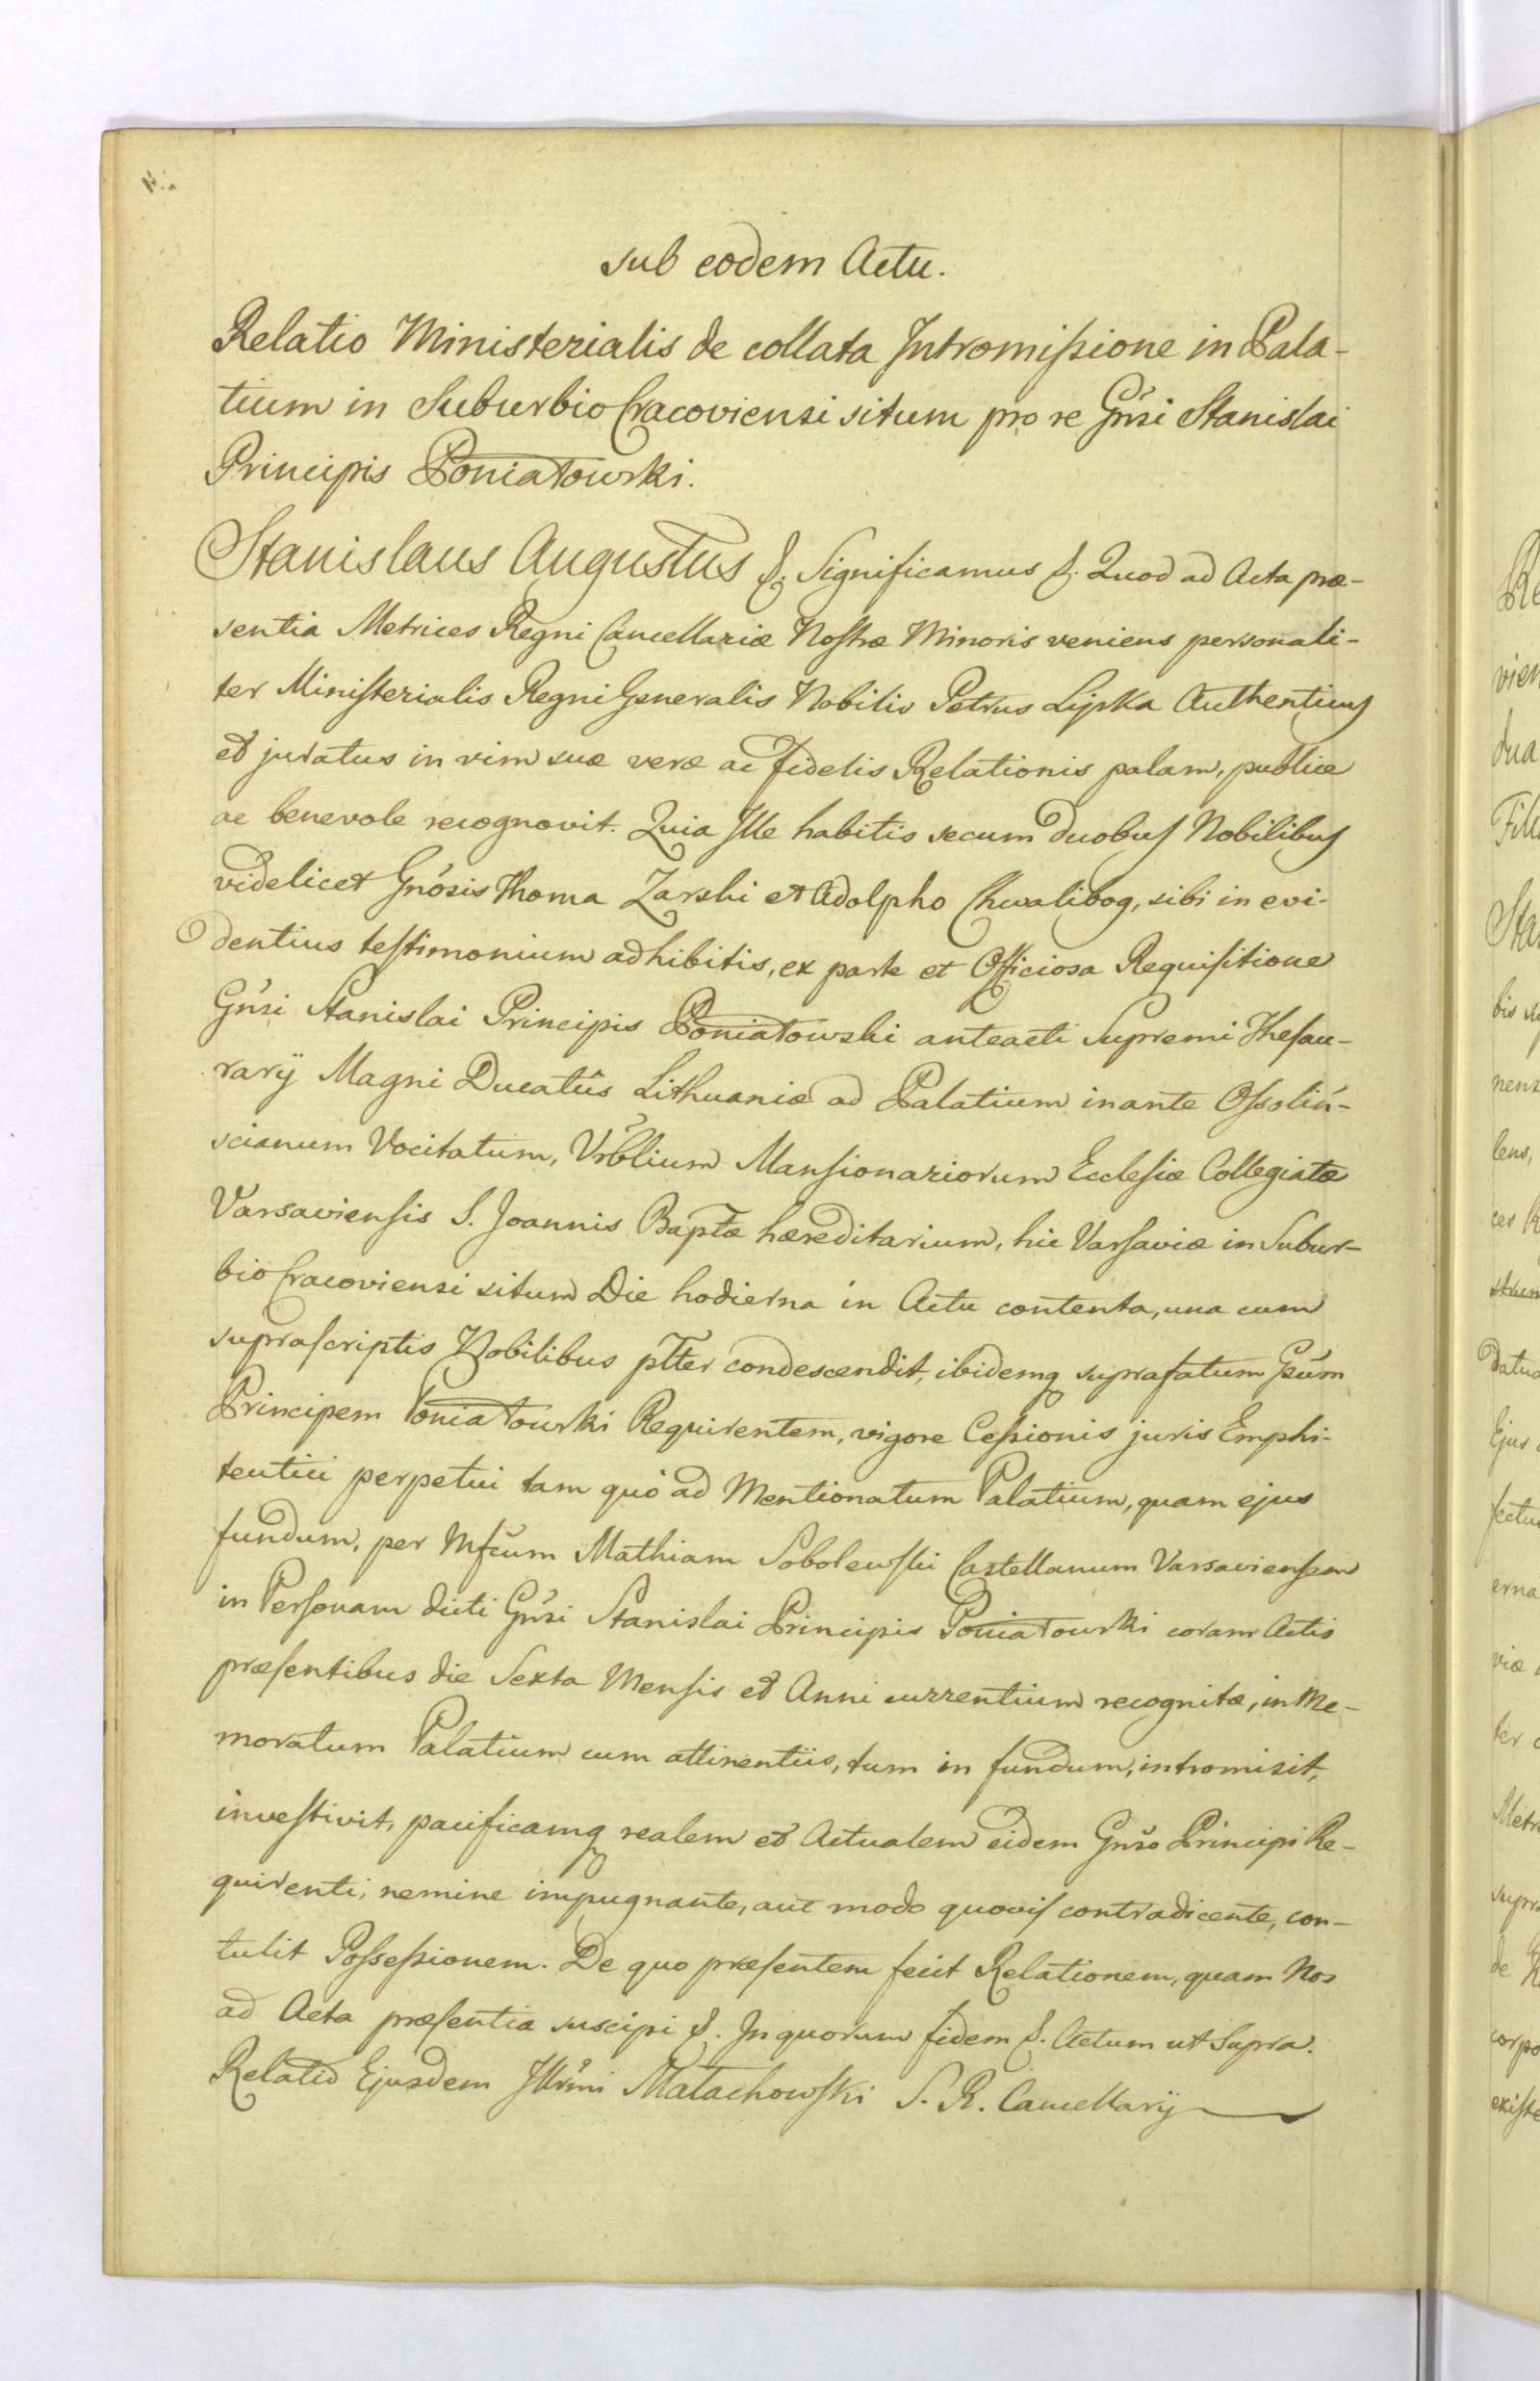 sub eodem Actu.
Relatio Ministerialis de collata Intromissione in Pala-
tium in Suburbio Cracoviensi situm pro re Gnŕsi Stanislai
Principis Poniatowski.
Stanislaus Augustus &. Significamus &. Quod ad Acta præ-
sentia Metrices Regni Cancellariæ Nostræ Minoris veniens personali-
ter Ministerialis Regni Generalis Nobilis Petrus Lipka Authenticus
et juratus in vim suæ veræ ac fidelis Relationis palam, publice
ac benevole recognovit. Quia Ille habitis secum duobus Nobilibus
videlicet Gnŕosis Thoma Zarski et Adolpho Chwalibog, sibi in evi-
dentius testimonium adhibitis, ex parte et Officiosa Requisitione
Gnŕsi Stanislai Principis Poniatowski anteacti Supremi Thesau-
rarij Magni Ducatûs Lithuaniæ ad Palatium inante Ossoliń-
scianum Vocitatum, Vrblium Mansionariorum Ecclesiæ Collegiatæ
Varsaviensis S. Joannis Baptæ hæreditarium, hic Varsaviæ in Subur-
bio Cracoviensi situm Die hodierna in Actu contenta, una cum
suprascriptis Nobilibus pltter condescendit, ibidemq suprafatum Gsum
Principem Poniatowski Requirentem, vigore Cessionis juris Emphi-
teutici perpetui tam quò ad Mentionatum Palatium, quam ejus
fundum, per Mfcum Mathiam Sobolewski Castellanum Varsaviensem
in Personam dicti Gnŕsi Stanislai Principis Poniatowski coram Actis
præsentibus die Sexta Mensis et Anni currentium recognitæ, in Me-
moratum Palatium cum attinentiis, tum in fundum, intromisit,
investivit, pacificamq realem et Actualem eidem Gnŕso Principi Re-
quirenti, nemine impugnante, aut modo quovis contradicente, con-
tulit Possessionem. De quo præsentem fecit Relationem, quam Nos
ad Acta præsentia suscipi &. In quorum fidem &. Actum ut Supra.
Relatio Ejusdem Illrmi Małachowski S. R. Cancellarij